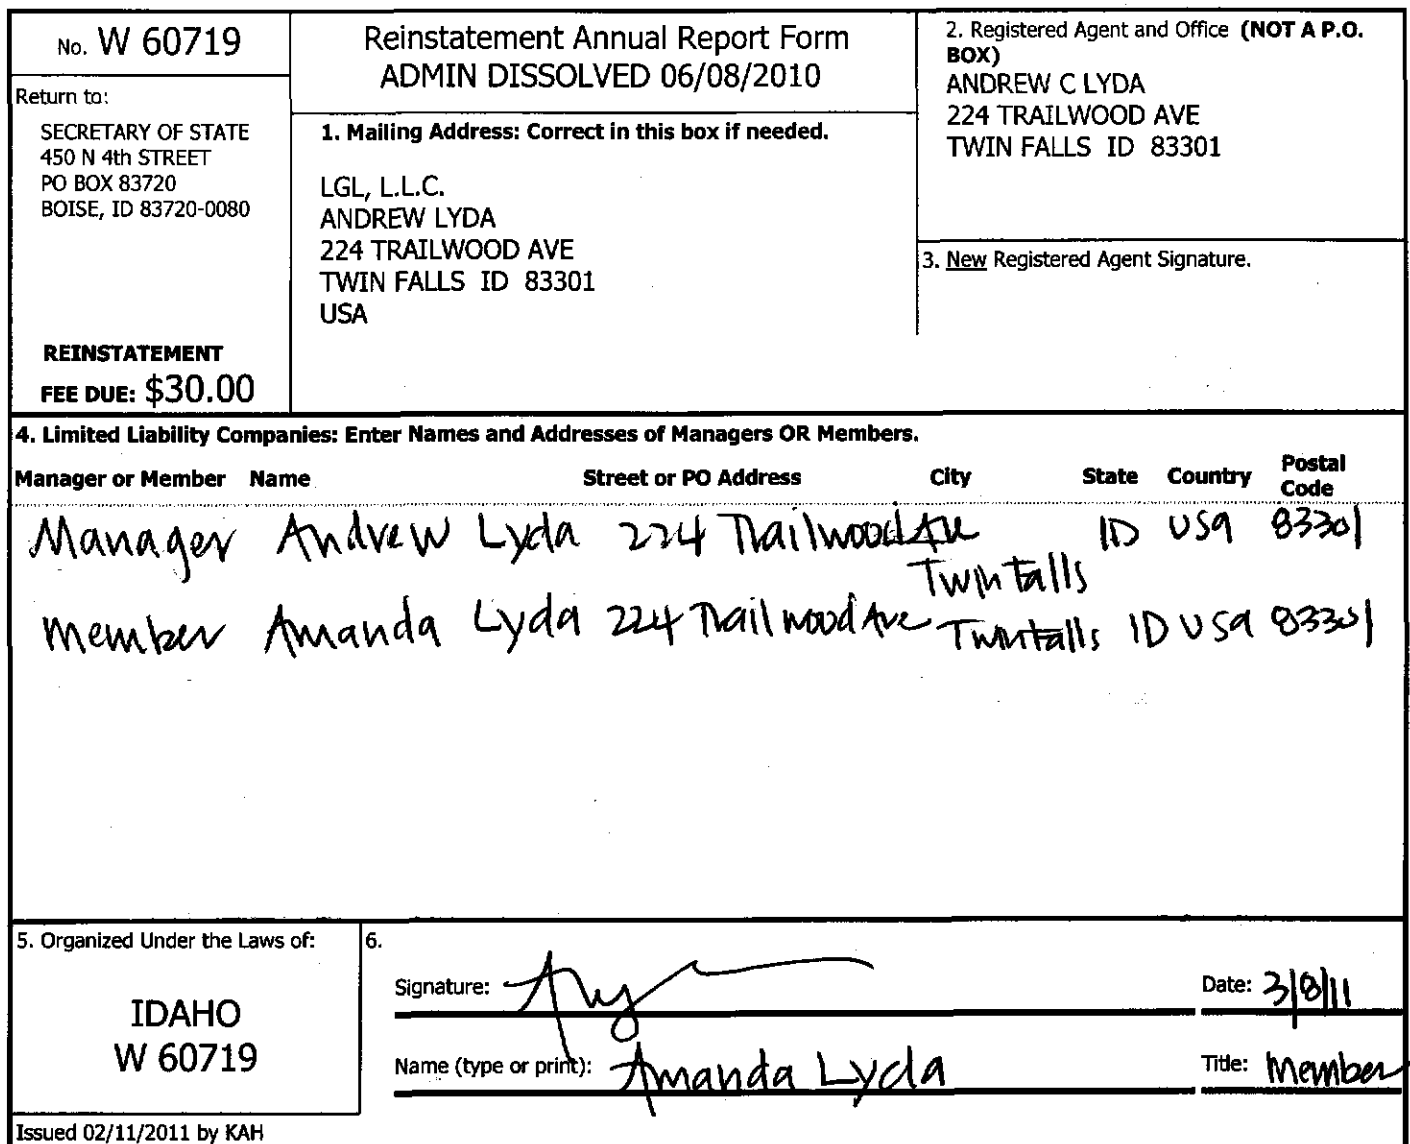 No. W 60719
Return to:
SECRETARY OF STATE
450 N 4th STREET
PO BOX 83720
BOISE, ID 83720-0080
REINSTATEMENT
FEE DUE: $30.00
Reinstatement Annual Report Form
ADMIN DISSOLVED 06/08/2010
1. Mailing Address: Correct in this box if needed.
LGL, L.L.C.
ANDREW LYDA
224 TRAILWOOD AVE
TWIN FALLS ID 83301
USA
2. Registered Agent and Office (NOT A P.O.
BOX)
ANDREW C LYDA
224 TRAILWOOD AVE
TWIN FALLS ID 83301
3. New Registered Agent Signature.
4. Limited Liability Companies: Enter Names and Addresses of Managers OR Members.
Manager or Member Name Street or PO Address City State Country Postal Code
Manager Andrew Lyda 224 Trailwood Ave ID USA 83301
Twin Falls
Member Amanda Lyda 224 Trailwood Ave Twin Falls ID USA 83301
5. Organized Under the Laws of:
IDAHO
W 60719
6.
Signature:
Date: 3/8/11
Name (type or print): Amanda Lyda
Title: Member
Issued 02/11/2011 by KAH